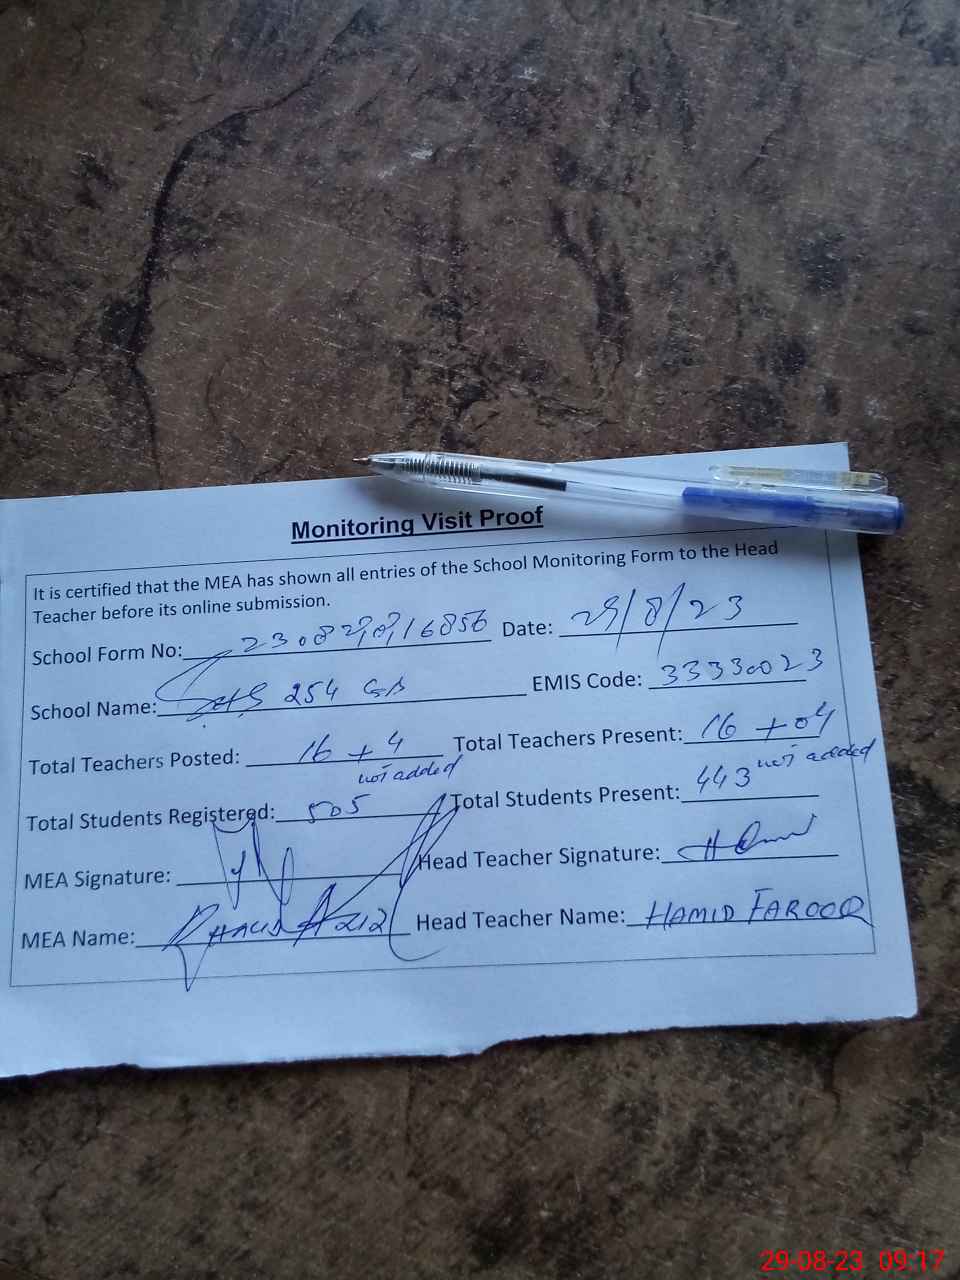 Monitoring Visit Proof
It is certified that the MEA has shown all entries of the School Monitoring Form to the Head
Teacher before its online submission.
School Form No: Date: 29/8/23
School Name: 254 GB EMIS Code: 33330023
Total Teachers Posted: 16 + 4 not added Total Teachers Present: 16 + 04 not added
Total Students Registered: 505 Total Students Present: 443
MEA Signature: Head Teacher Signature:
MEA Name: KHALID AZIZ Head Teacher Name: HAMID FAROOQ
29-08-23 09:17